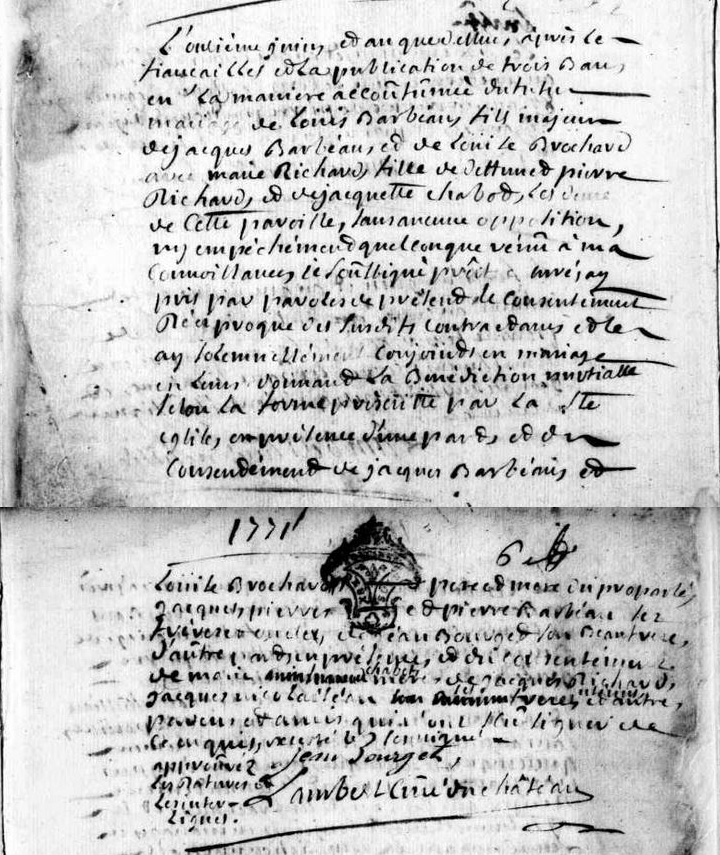 L'onzième juin, et an que dessus, après les
fiancailles et la publication de trois Bans,
en la maniere accoûtumée du futur
mariage de Loüis Barbéaus fils majeur
de jacques Barbéaus et de Loüise Brochard
avec marie Richard, fille de deffunct pierre
Richard, et de jacquette chabot, les deux
de Cette paroisse, sans aucune opposition,
ny empéchément quelconque venü à ma
Connoissance, je soussigné prêtre curé, ay
pris par paroles de présent le Consentement
Réciproque des susdits Contractans et les
ay solemnellément Conjoints en mariage
en leurs donnant la Bénédiction nuptialle
selon la forme préscritte par la Ste
eglise, en présence d'une part et du
Consendément de jacques Barbéaus et
1771
6e
Loüise Brochard pere et mere du proparlé,
Jacques pierre et pierre Barbeau ses
freres et oncles, et jean Bourget son Beaufrere,
d'autre part en présence, et du Consentément
de marie chabot mere, de jacques Richard,
jacques nicolas et autres
parens et amis qui n'ont sçu signer de
Ce enquis, excepté les soussignés
approuvéz
les Ratures et
les inter-
Lignes.
Jean Bourget,
Lambert Curé du château